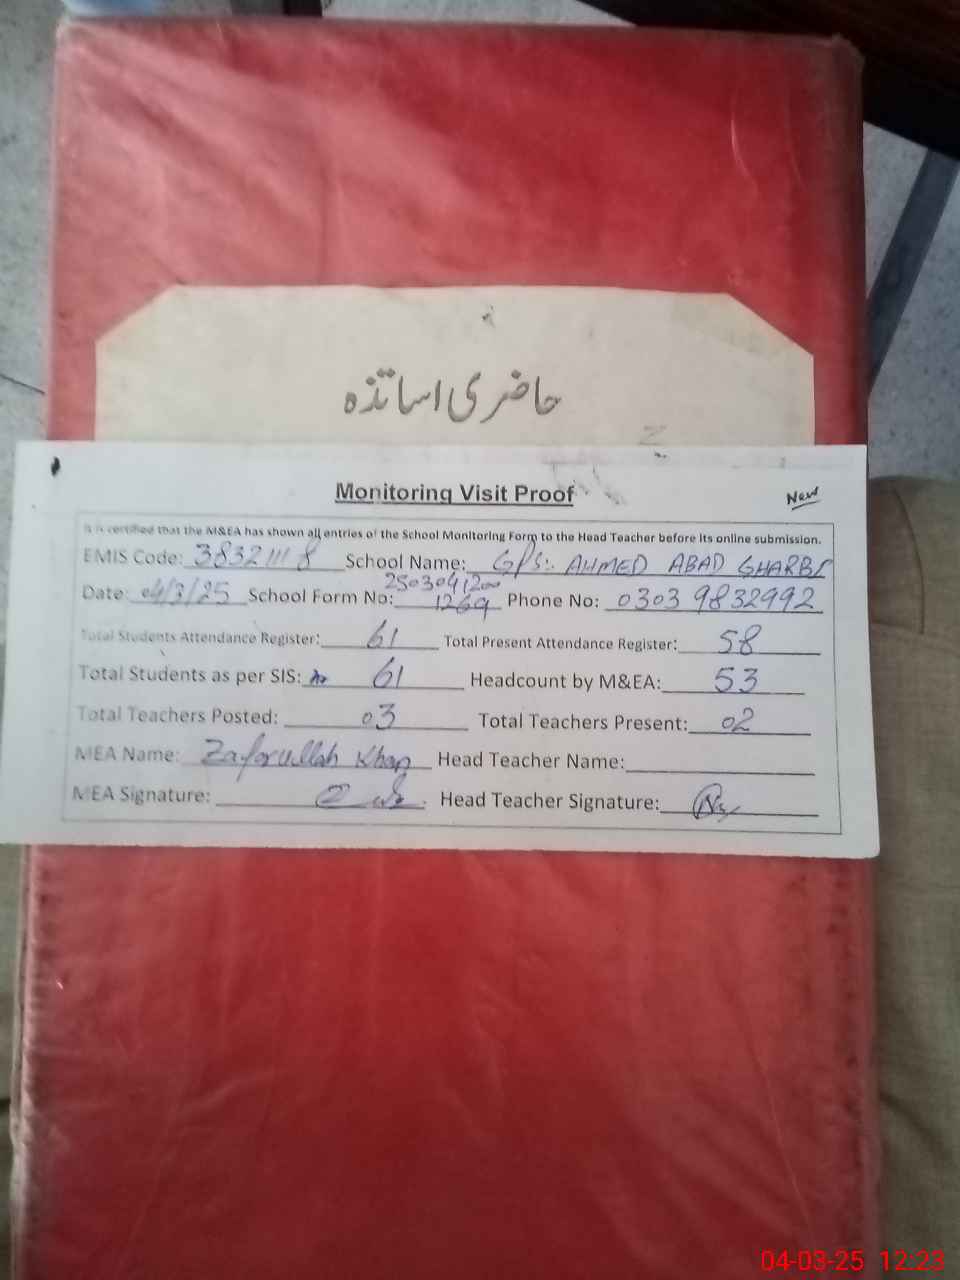 حاضری اساتذہ
Monitoring Visit Proof
New
It is certified that the M&EA has shown all entries of the School Monitoring Form to the Head Teacher before its online submission.
EMIS Code: 38321118 School Name: GPS: AHMED ABAD GHARBI
Date: 04/3/25 School Form No: 2503041200 1269 Phone No: 0303 9832992
Total Students Attendance Register: 61 Total Present Attendance Register: 58
Total Students as per SIS: 61 Headcount by M&EA: 53
Total Teachers Posted: 03 Total Teachers Present: 02
MEA Name: Zafarullah Khan Head Teacher Name:
MEA Signature: Head Teacher Signature:
04-03-25 12:23